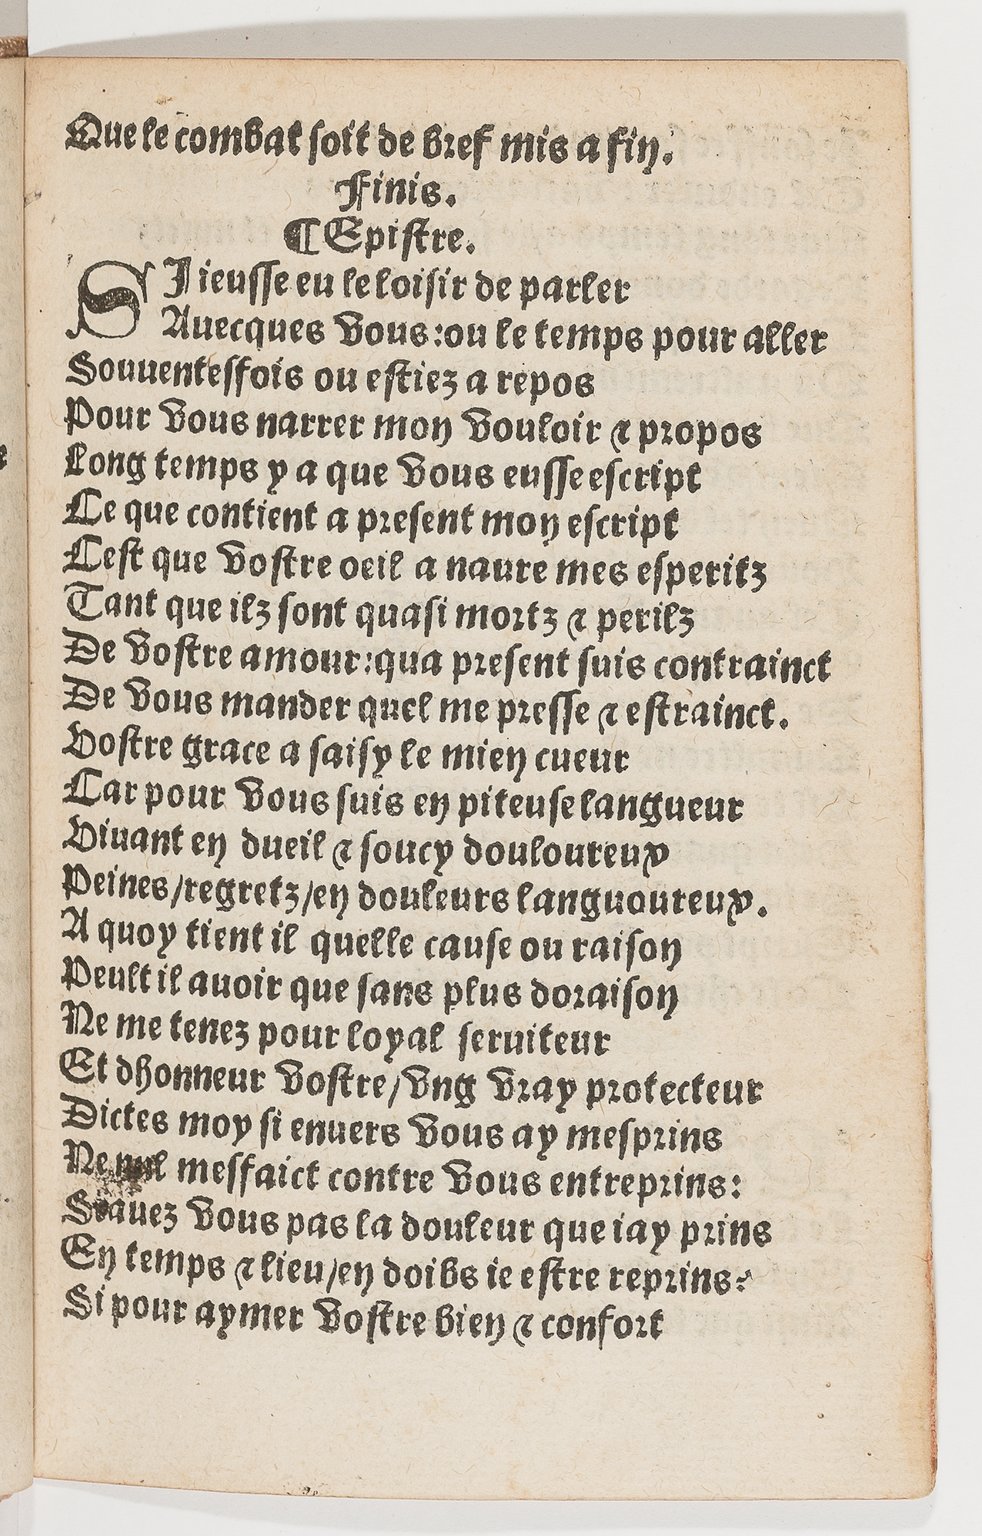 Que le combat soit de bref mis a fin.
Finis.
¶ Epistre.
SI ieusse eu le loisir de parler
Auecques vous:ou le temps pour aller
Souuentesfois ou estiez a repos
Pour vous narrer mon vouloir & propos
Long temps y a que vous eusse escript
Ce que contient a present mon escript
Cest que vostre oeil a naure mes esperitz
Tant que ilz sont quasi mortz & perilz
De vostre amour:qua present suis contrainct
De vous mander quel me presse & estrainct.
Vostre grace a saisy le mien cueur
Car pour vous suis en piteuse langueur
Viuant en dueil & soucy douloureux
Peines/regretz/en douleurs languoureux.
A quoy tient il quelle cause ou raison
Peult il auoir que sans plus doraison
Ne me tenez pour loyal seruiteur
Et dhonneur vostre/vng vray protecteur
Dictes moy si enuers vous ay mesprins
Ne nul mesfaict contre vous entreprins:
Scauez vous pas la douleur que iay prins
En temps & lieu/en doibs ie estre reprins?
Si pour aymer vostre bien & confort